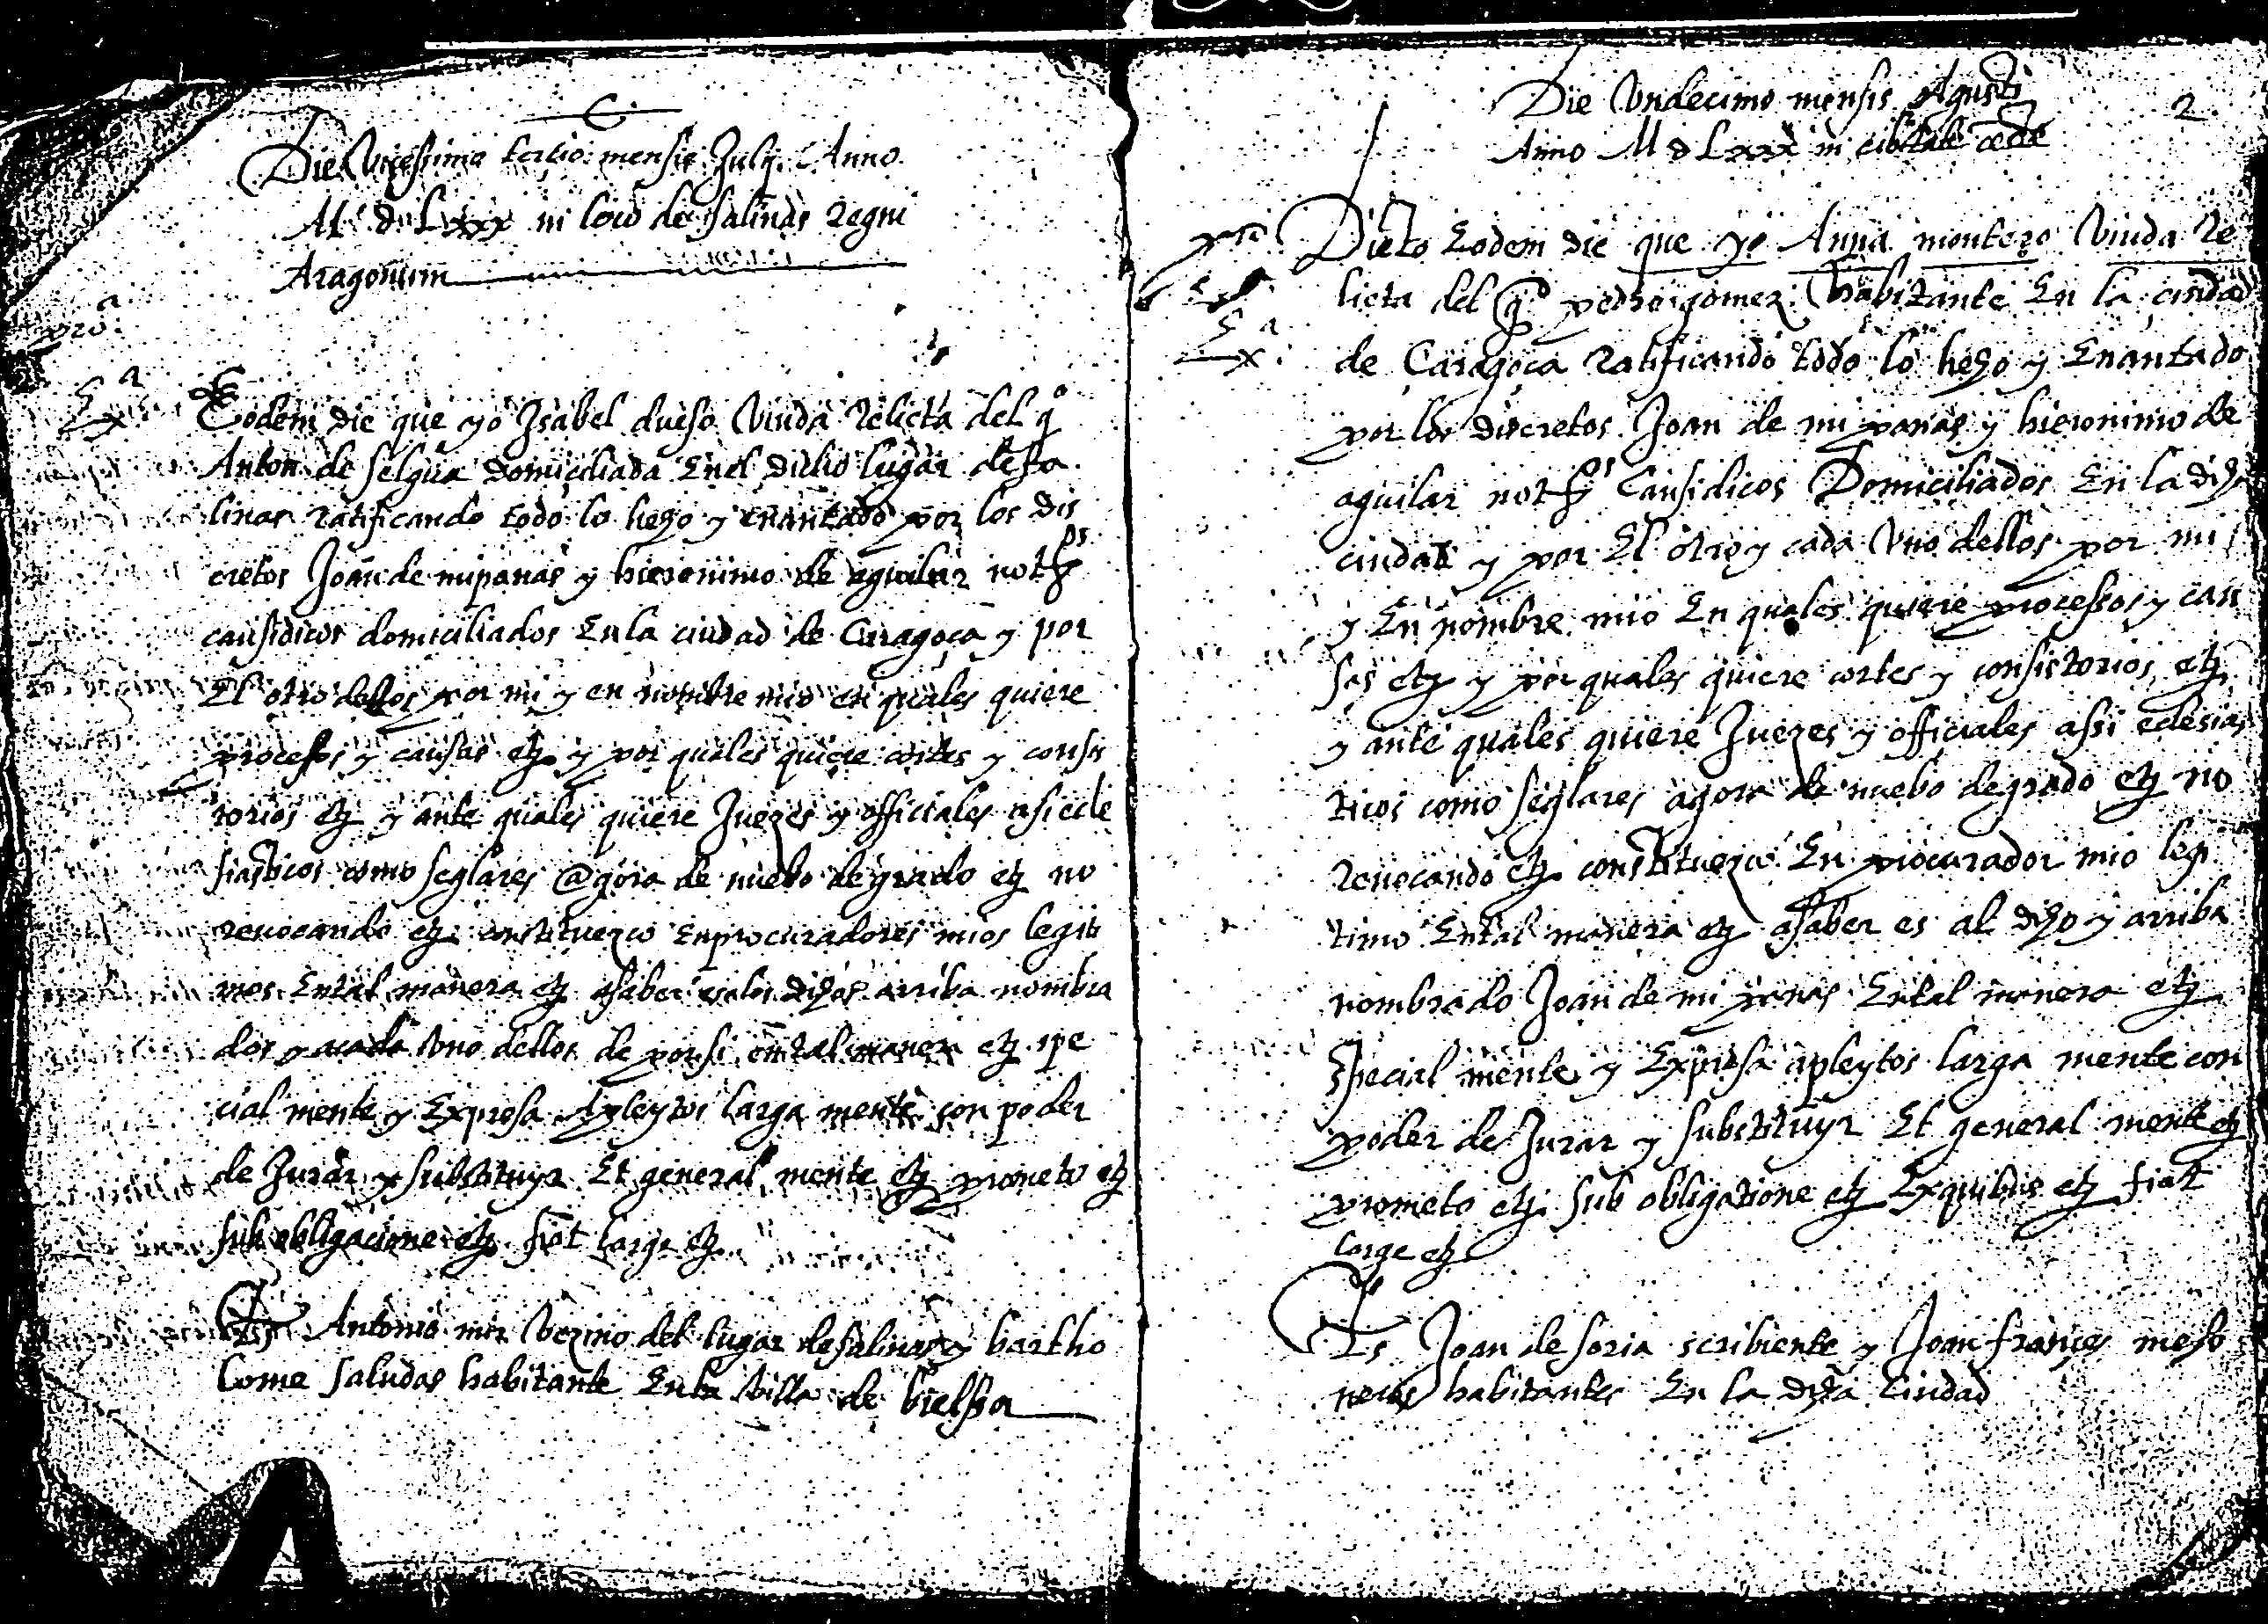 Die Vicessimo tertio mensis Julij Anno
M d Lxxx in loco de salinas Regni
Aragonum
pro.ª
Ex.ª
Eodem die que yo Isabel dueso Viuda Relicta del qº
Anton de selgua domiciliada Enel dicho lugar de sa
linas Ratificando todo lo hecho y enantado por los dis
cretos Joan de mipanas y hieronimo de aguilar notros
causidicos domiciliados En la ciudad de Caragoça y por
El otro dellos por mi y en nombre mio en quales quiere
processos y causas etz y por quales quiere cortes y consis
torios etz y ante quales quiere Juezes y officiales asi ecle
siasticos como seglares agora de nuebo de grado etz no
reuocando etz constituezco en procuradores mios legiti
mos En tal manera etz asaber es a los dichos arriba nombra
dos y a cada Vno dellos de por si en tal manera etz spe
cial mente y Expresa a pleytos larga mente con poder
de Jurar y substituyr Et general mente etz prometo etz
sub obligacione etz fiat large etz
Ts Antonio mur Vezino del lugar de salinas y bartho
lome saludas habitante En la Villa de bielssa
2
Die Vndecimo mensis Agusti
Anno M d Lxxx in cibitate
Ex.ª
Dicto Eodem die que yo Anna montero Viuda Re
licta del qº pedro gomez habitante En la ciudad
de Caragoça Ratificando todo lo hecho y Enantado
por los discretos Joan de mi panas y hieronimo de
aguilar notros Causidicos Domiciliados En la dicha
ciudad y por El otro y cada Vno dellos por mi
y En nombre mio En quales quiere processos y cau
sas etz y por quales quiere cortes y consistorios etz
y ante quales quiere Juezes y officiales assi eclesias
ticos como seglares agora de nuebo de grado etz no
Reuocando etz constituezco En procurador mio legi
timo En tal manera etz asaber es al dicho y arriba
nombrado Joan de mi panas En tal manera etz
Special mente y Expresa apleytos larga mente con
poder de Jurar y substituyr Et general mente etz
prometo etz sub obligatione etz Ex quibus etz fiat
large etz
Ts Joan de soria scribiente y Joan frances meso
nero habitantes En la dicha Ciudad